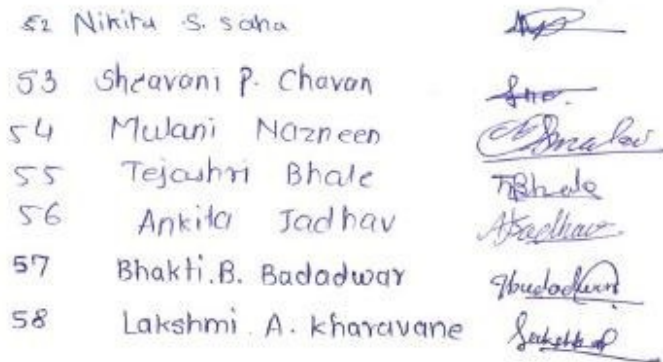 52 Nikita S. Saha
53 Shravani P. Chavan
54 Mulani Nazneen
55 Tejashri Bhale TBhale
56 Ankita Jadhav AJadhav
57 Bhakti.B. Badadwar
58 Lakshmi A. Kharavane